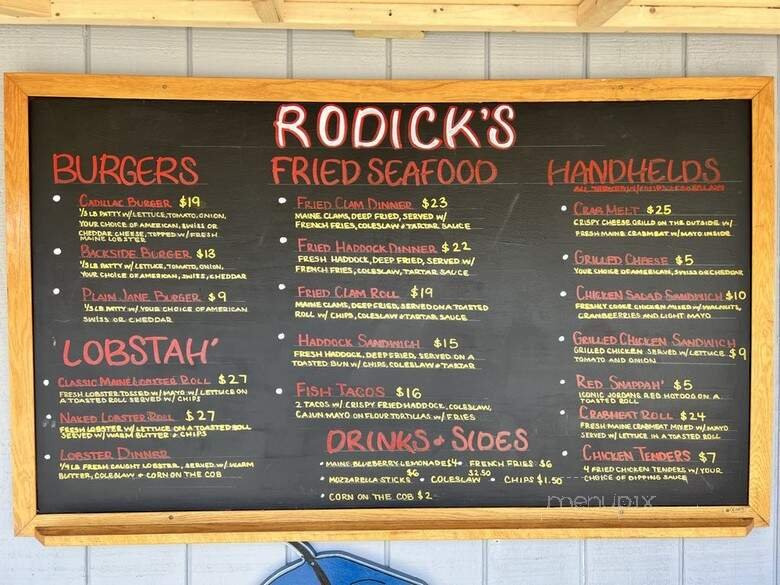 RODICK'S
BURGERS
CADILLAC BURGER $19
1/3 LB PATTY W/ LETTUCE, TOMATO, ONION,
YOUR CHOICE OF AMERICAN, SWISS OR
CHEDDAR CHEESE, TOPPED W/ FRESH
MAINE LOBSTER
BACKSIDE BURGER $13
1/3 LB PATTY W/ LETTUCE, TOMATO, ONION,
YOUR CHOICE OF AMERICAN, SWISS, CHEDDAR
PLAIN JANE BURGER $9
1/3 LB PATTY W/ YOUR CHOICE OF AMERICAN
SWISS OR CHEDDAR
LOBSTAH'
CLASSIC MAINE LOBSTER ROLL $27
FRESH LOBSTER TOSSED W/ MAYO W/ LETTUCE ON
A TOASTED ROLL SERVED W/ CHIPS
NAKED LOBSTER ROLL $27
FRESH LOBSTER W/ LETTUCE ON A TOASTED ROLL
SERVED W/ WARM BUTTER + CHIPS
LOBSTER DINNER
1/4 LB FRESH CAUGHT LOBSTER, SERVED W/ WARM
BUTTER, COLESLAW + CORN ON THE COB
FRIED SEAFOOD
FRIED CLAM DINNER $23
MAINE CLAMS, DEEP FRIED, SERVED W/
FRENCH FRIES, COLESLAW + TARTAR SAUCE
FRIED HADDOCK DINNER $22
FRESH HADDOCK, DEEP FRIED, SERVED W/
FRENCH FRIES, COLESLAW, TARTAR SAUCE
FRIED CLAM ROLL $19
MAINE CLAMS, DEEP FRIED, SERVED ON A TOASTED
ROLL W/ CHIPS, COLESLAW + TARTAR SAUCE
HADDOCK SANDWICH $15
FRESH HADDOCK, DEEP FRIED, SERVED ON A
TOASTED BUN W/ CHIPS, COLESLAW + TARTAR
FISH TACOS $16
2 TACOS W/ CRISPY FRIED HADDOCK, COLESLAW,
CAJUN MAYO ON FLOUR TORTILLAS W/ FRIES
DRINKS + SIDES
MAINE BLUEBERRY LEMONADE $4 FRENCH FRIES $6
MOZZARELLA STICKS $6 COLESLAW $2.50 CHIPS $1.50
CORN ON THE COB $2
HANDHELDS
CRAB MELT $25
CRISPY CHEESE GRILLD ON THE OUTSIDE W/
FRESH MAINE CRABMEAT W/ MAYO INSIDE
GRILLED CHEESE $5
YOUR CHOICE OF AMERICAN, SWISS OR CHEDDAR
CHICKEN SALAD SANDWICH $10
FRESHLY COOKE CHICKEN MIXED W/ WALNUTS,
CRANBEERRIES AND LIGHT MAYO
GRILLED CHICKEN SANDWICH
GRILLED CHICKEN SERVED W/ LETTUCE $9
TOMATO AND ONION
RED SNAPPAH' $5
ICONIC JORDANS RED HOTDOG ON A
TOASTED ROLL
CRABMEAT ROLL $24
FRESH MAINE CRABMEAT MIXED W/ MAYO
SERVED W/ LETTUCE IN A TOASTED ROLL
CHICKEN TENDERS $7
4 FRIED CHICKEN TENDERS W/ YOUR
CHOICE OF DIPPING SAUCE
menupix